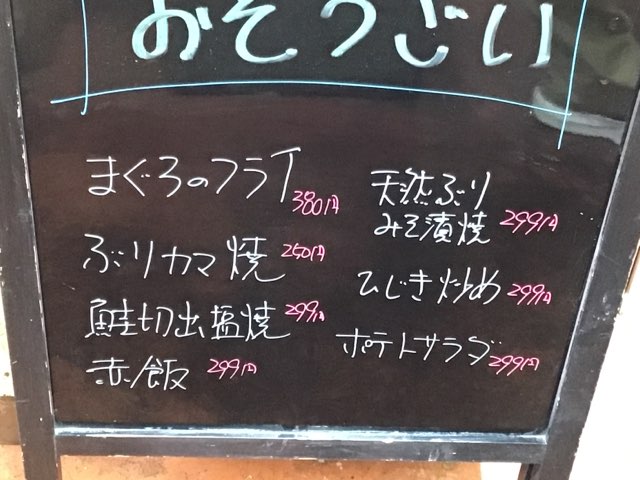 おそうざい
まぐろのフライ
380円
ぶりカマ焼 250円
鮭切出塩焼 299円
赤飯 299円
天然ぶり
みそ漬焼 299円
ひじき炒め 299円
ポテトサラダ 299円